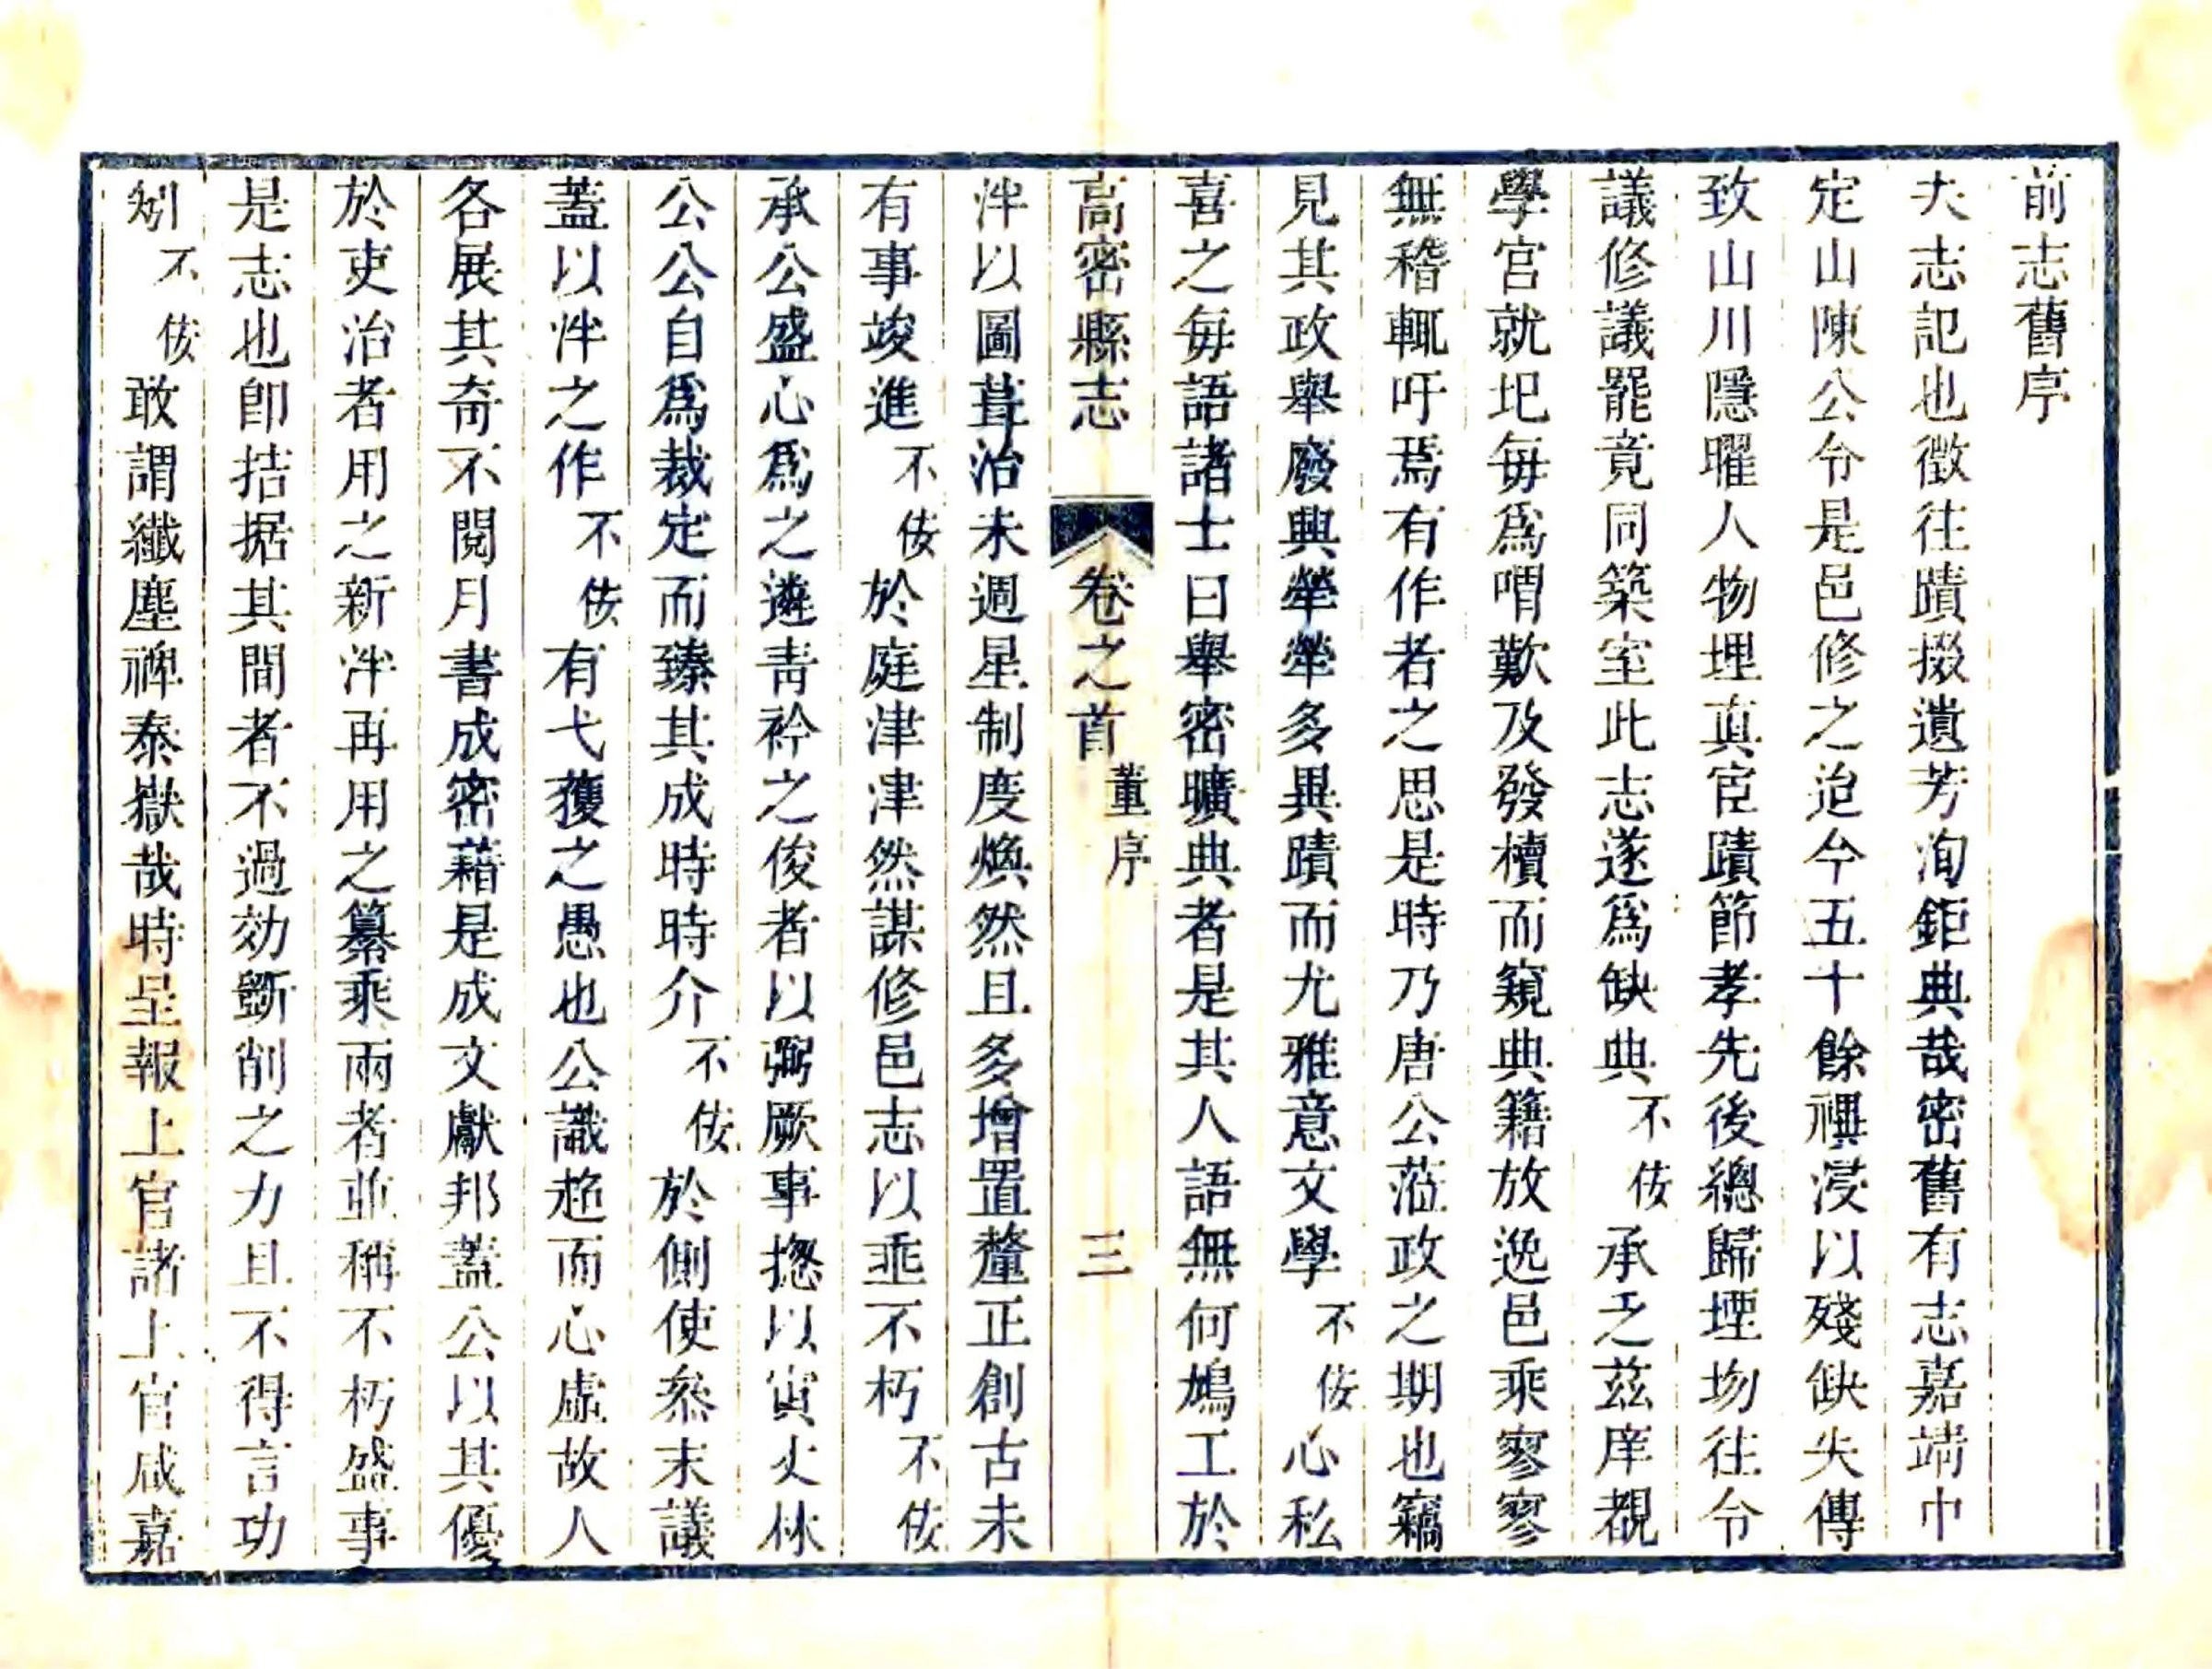 前志舊序
夫志記也徵往蹟掇遺芳洵鉅典哉密舊有志嘉靖中
定山陳公令是邑修之迨今五十餘禩浸以殘缺失傳
致山川隱曜人物埋真宦蹟節孝先後總歸堙坳往令
議修議罷竟同築室此志遂爲缺典不佞承乏茲庠覩
學宮就圯每爲喟歎及發櫝而窺典籍放逸邑乘寥寥
無稽輒吁焉有作者之思是時乃唐公蒞政之期也竊
見其政舉廢興犖犖多異蹟而尤雅意文學不佞心私
喜之每語諸士曰舉密曠典者是其人語無何鳩工於
高密縣志 卷之首 董序 三
泮以圖葺治未週星制度煥然且多增置釐正創古未
有事竣進不佞於庭津津然謀修邑志以垂不朽不佞
承公盛心爲之遴青衿之俊者以弼厥事摠以寅丈林
公公自爲裁定而臻其成時時介不佞於側使叅末議
蓋以泮之作不佞有弋獲之愚也公識超而心虛故人
各展其奇不閱月書成密藉是成文獻邦蓋公以其優
於吏治者用之新泮再用之纂乘兩者並稱不朽盛事
矧不佞敢謂纖塵裨泰嶽哉時呈報上官諸上官咸嘉
是志也卽拮据其間者不過効斵削之力且不得言功